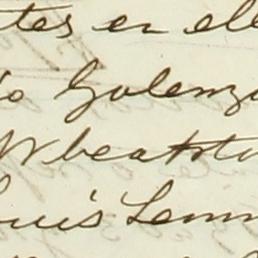 tes en ele
io Galenz
Wheatsto
ouis Lemm